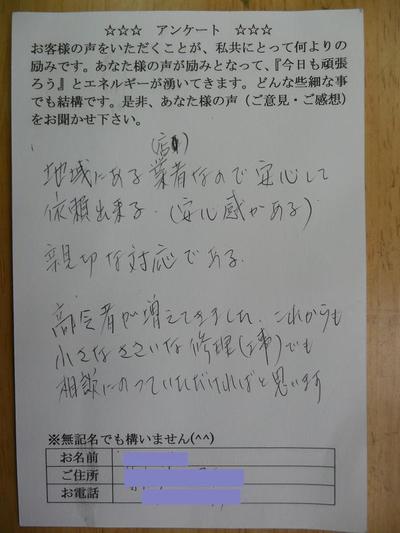 ☆☆☆ アンケート ☆☆☆
お客様の声をいただくことが、私共にとって何よりの
励みです。あなた様の声が励みとなって、『今日も頑張
ろう』とエネルギーが湧いてきます。どんな些細な事
でも結構です。是非、あなた様の声（ご意見・ご感想）
をお聞かせ下さい。
(店)
地域にある業者なので安心して
依頼出来る。(安心感がある)
親切な対応である。
高令者が増えてきました。これからも
小さなささいな修理(工事)でも
相談にのっていただければと思います
※無記名でも構いません(^^)
お名前
ご住所
お電話